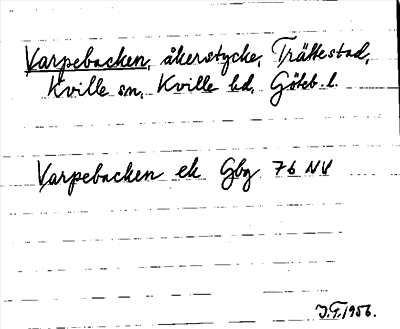 Varpebacken, åkerstycke, Trättestad,
Kville sn, Kville hd, Göteb. l.
Varpebacken ek Gbg 76 NV
J.F. 1956.